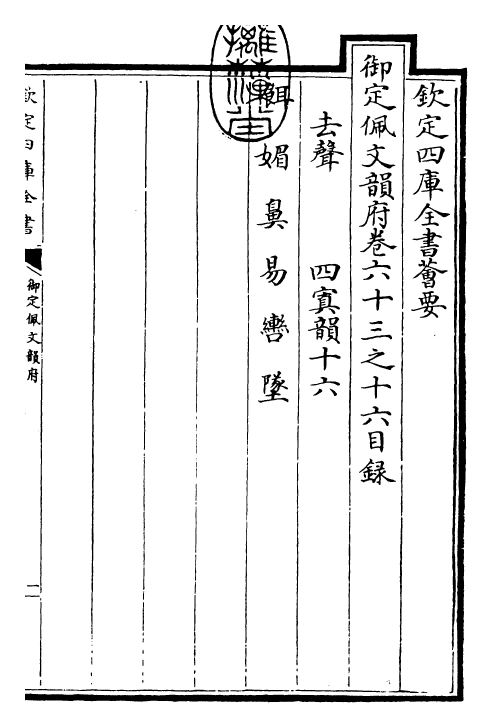 欽定四庫全書薈要
御定佩文韻府卷六十三之十六目録
去聲 四寘韻十六
媚鼻易轡墜
欽定四庫全書
御定佩文韻府
一